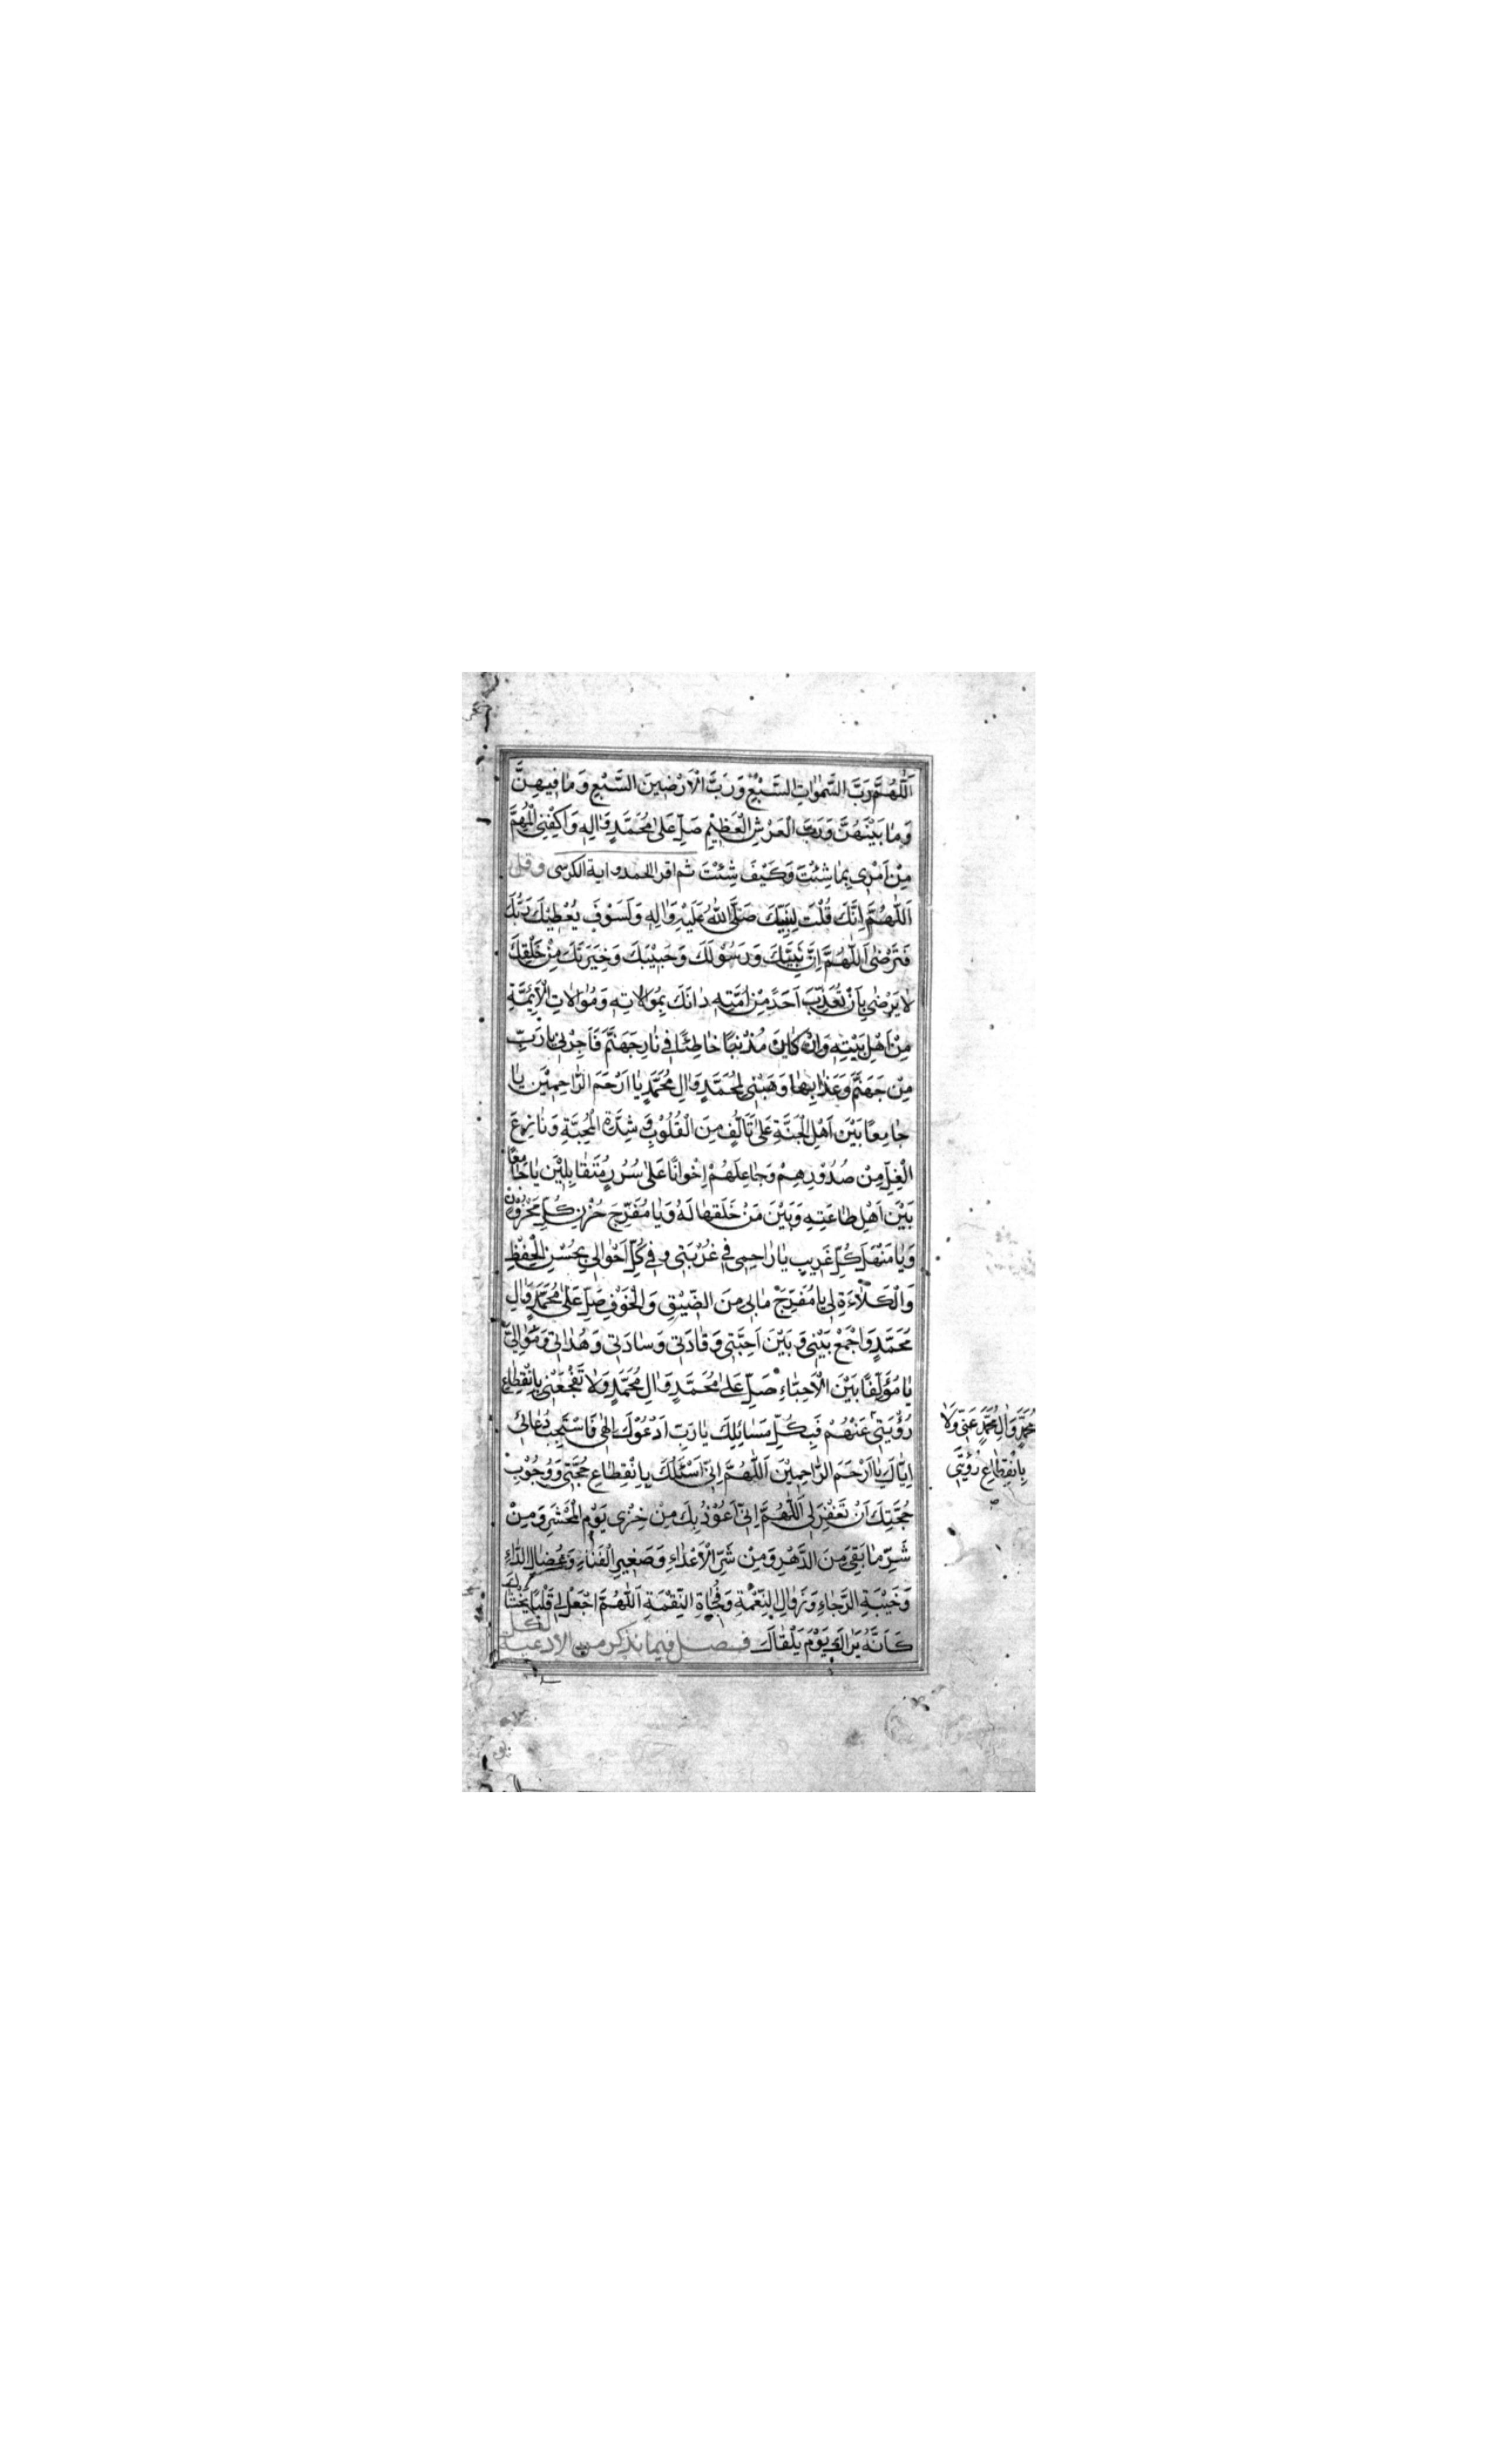 اَللّٰهُمَّ رَبَّ السَّمٰوَاتِ السَّبْعِ وَرَبَّ الْاَرَضِينَ السَّبْعِ وَمٰا فِيهِنَّ
وَمٰا بَيْنَهُنَّ وَرَبَّ الْعَرْشِ الْعَظِيْمِ صَلِّ عَلىٰ مُحَمَّدٍ وَاٰلِهِ وَاكْفِنِى الْمُهِمَّ
مِنْ اَمْرِى بِمٰا شِئْتَ وَكَيْفَ شِئْتَ ثم اقرا الحمد واية الكرسى وقل
اَللّٰهُمَّ اِنَّكَ قُلْتَ لِنَبِيِّكَ صَلَّى اللّٰهُ عَلَيْهِ وَاٰلِهِ وَلَسَوْفَ يُعْطِيْكَ رَبُّكَ
فَتَرْضٰى اَللّٰهُمَّ اِنَّ نَبِيَّكَ وَرَسُوْلَكَ وَحَبِيْبَكَ وَخِيَرَتَكَ مِنْ خَلْقِكَ
لٰا يَرْضٰى بِاَنْ تُعَذِّبَ اَحَدً مِنْ اُمَّتِهِ دٰانَكَ بِمُوَالٰاتِهِ وَمُوٰالٰاتِ الْاَئِمَّةِ
مِنْ اَهْلِ بَيْتِهِ وَاِنْ كٰانَ مُذْنِبًا خٰاطِئًا فِى نٰارِ جَهَنَّمَ فَاَجِرْنِى يٰا رَبِّ
مِنْ جَهَنَّمَ وَعَذٰابِهٰا وَهَبْنِى لِمُحَمَّدٍ وَاٰلِ مُحَمَّدٍ يٰا اَرْحَمَ الرّٰاحِمِيْنَ يٰا
جٰامِعًا بَيْنَ اَهْلِ الْجَنَّةِ عَلىٰ تَأَلُّفٍ مِنَ الْقُلُوْبِ وَشِدَّةِ الْمَحَبَّةِ وَنٰازِعَ
الْغِلِّ مِنْ صُدُوْرِهِمْ وَجٰاعِلَهُمْ اِخْوَانًا عَلىٰ سُرُرٍ مُتَقٰابِلِيْنَ يٰا جٰامِعًا
بَيْنَ اَهْلِ طٰاعَتِهِ وَبَيْنَ مَنْ خَلَقَهٰا لَهُ وَيٰا مُفَرِّجَ حُزْنِ كُلِّ مَحْزُوْنٍ
وَيٰا مَنْهَلَ كُلِّ غَرِيبٍ يٰا رٰاحِمِى فِى غُرْبَتِى وَفِى كُلِّ اَحْوٰالِى بِحُسْنِ الْحِفْظِ
وَالْكَلٰاءَةِ لِى يٰا مُفَرِّجَ مٰا بِى مِنَ الضِّيْقِ وَالْخَوْفِ صَلِّ عَلىٰ مُحَمَّدٍ وَاٰلِ
مُحَمَّدٍ وَاجْمَعْ بَيْنِى وَبَيْنَ اَحِبَّتِى وَقٰادَتِى وَسٰادَتِى وَهُدٰاتِى وَمَوٰالِىَّ
يٰا مُؤَلِّفًا بَيْنَ الْاَحِبّٰاءِ صَلِّ عَلىٰ مُحَمَّدٍ وَاٰلِ مُحَمَّدٍ وَلٰا تَفْجَعْنِى بِانْقِطٰاعِ
رُؤْيَتِى عَنْهُمْ فَبِكُلِّ مَسٰائِلِكَ يٰا رَبِّ اَدْعُوْكَ اِلٰهِى فَاسْتَجِبْ دُعٰائِى
اِيّٰاكَ يٰا اَرْحَمَ الرّٰاحِمِيْنَ اَللّٰهُمَّ اِنِّى اَسْئَلُكَ بِانْقِطٰاعِ حُجَّتِى وَوُجُوْبِ
حُجَّتِكَ اَنْ تَغْفِرَ لِى اَللّٰهُمَّ اِنِّى اَعُوْذُ بِكَ مِنْ خِزْىِ يَوْمِ الْمَحْشَرِ وَمِنْ
شَرِّ مٰا بَقِىَ مِنَ الدَّهْرِ وَمِنْ شَرِّ الْاَعْدٰاءِ وَصَغِيرِ الْفَنٰاءِ وَعُضٰالِ الدّٰاءِ
وَخَيْبَةِ الرَّجٰاءِ وَزَوٰالِ النِّعْمَةِ وَفُجْاةِ النِّقْمَةِ اَللّٰهُمَّ اجْعَلْ لِى قَلْبًا يَخْشٰاكَ
كَاَنَّهُ يَرٰاكَ يَوْمَ يَلْقٰاكَ فصل فيما نذكر من الادعية لكل
مُحَمَّدٍ وَاٰلِ مُحَمَّدٍ عَنِّى وَلٰا
بِانْقِطٰاعِ رُؤْيَتِى